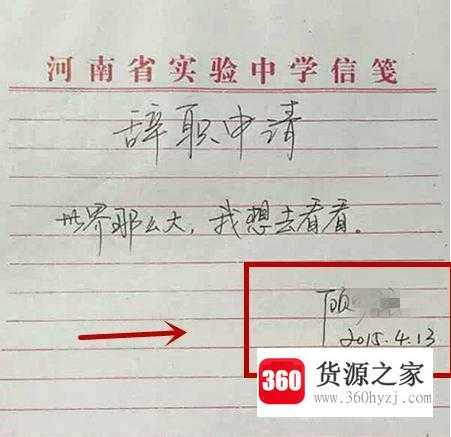 河南省实验中学信笺
辞职申请
世界那么大，我想去看看。
顾
2015.4.13
360 货源之家
www.360hyzj.com